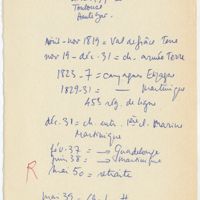 Toulouse
Avril-nov 1819 = Val de grâce
nov 19 - déc. 31 = ch. armée Terre
1823-7 = campagnes Espagne
1829-31 = — Martinique
453 rég. de ligne
déc. 31 = ch. entr. 1ère cl. Marine
Martinique
fév. 37 = → Guadeloupe
juin 38 = → Martinique
R
mai 50 = retraite